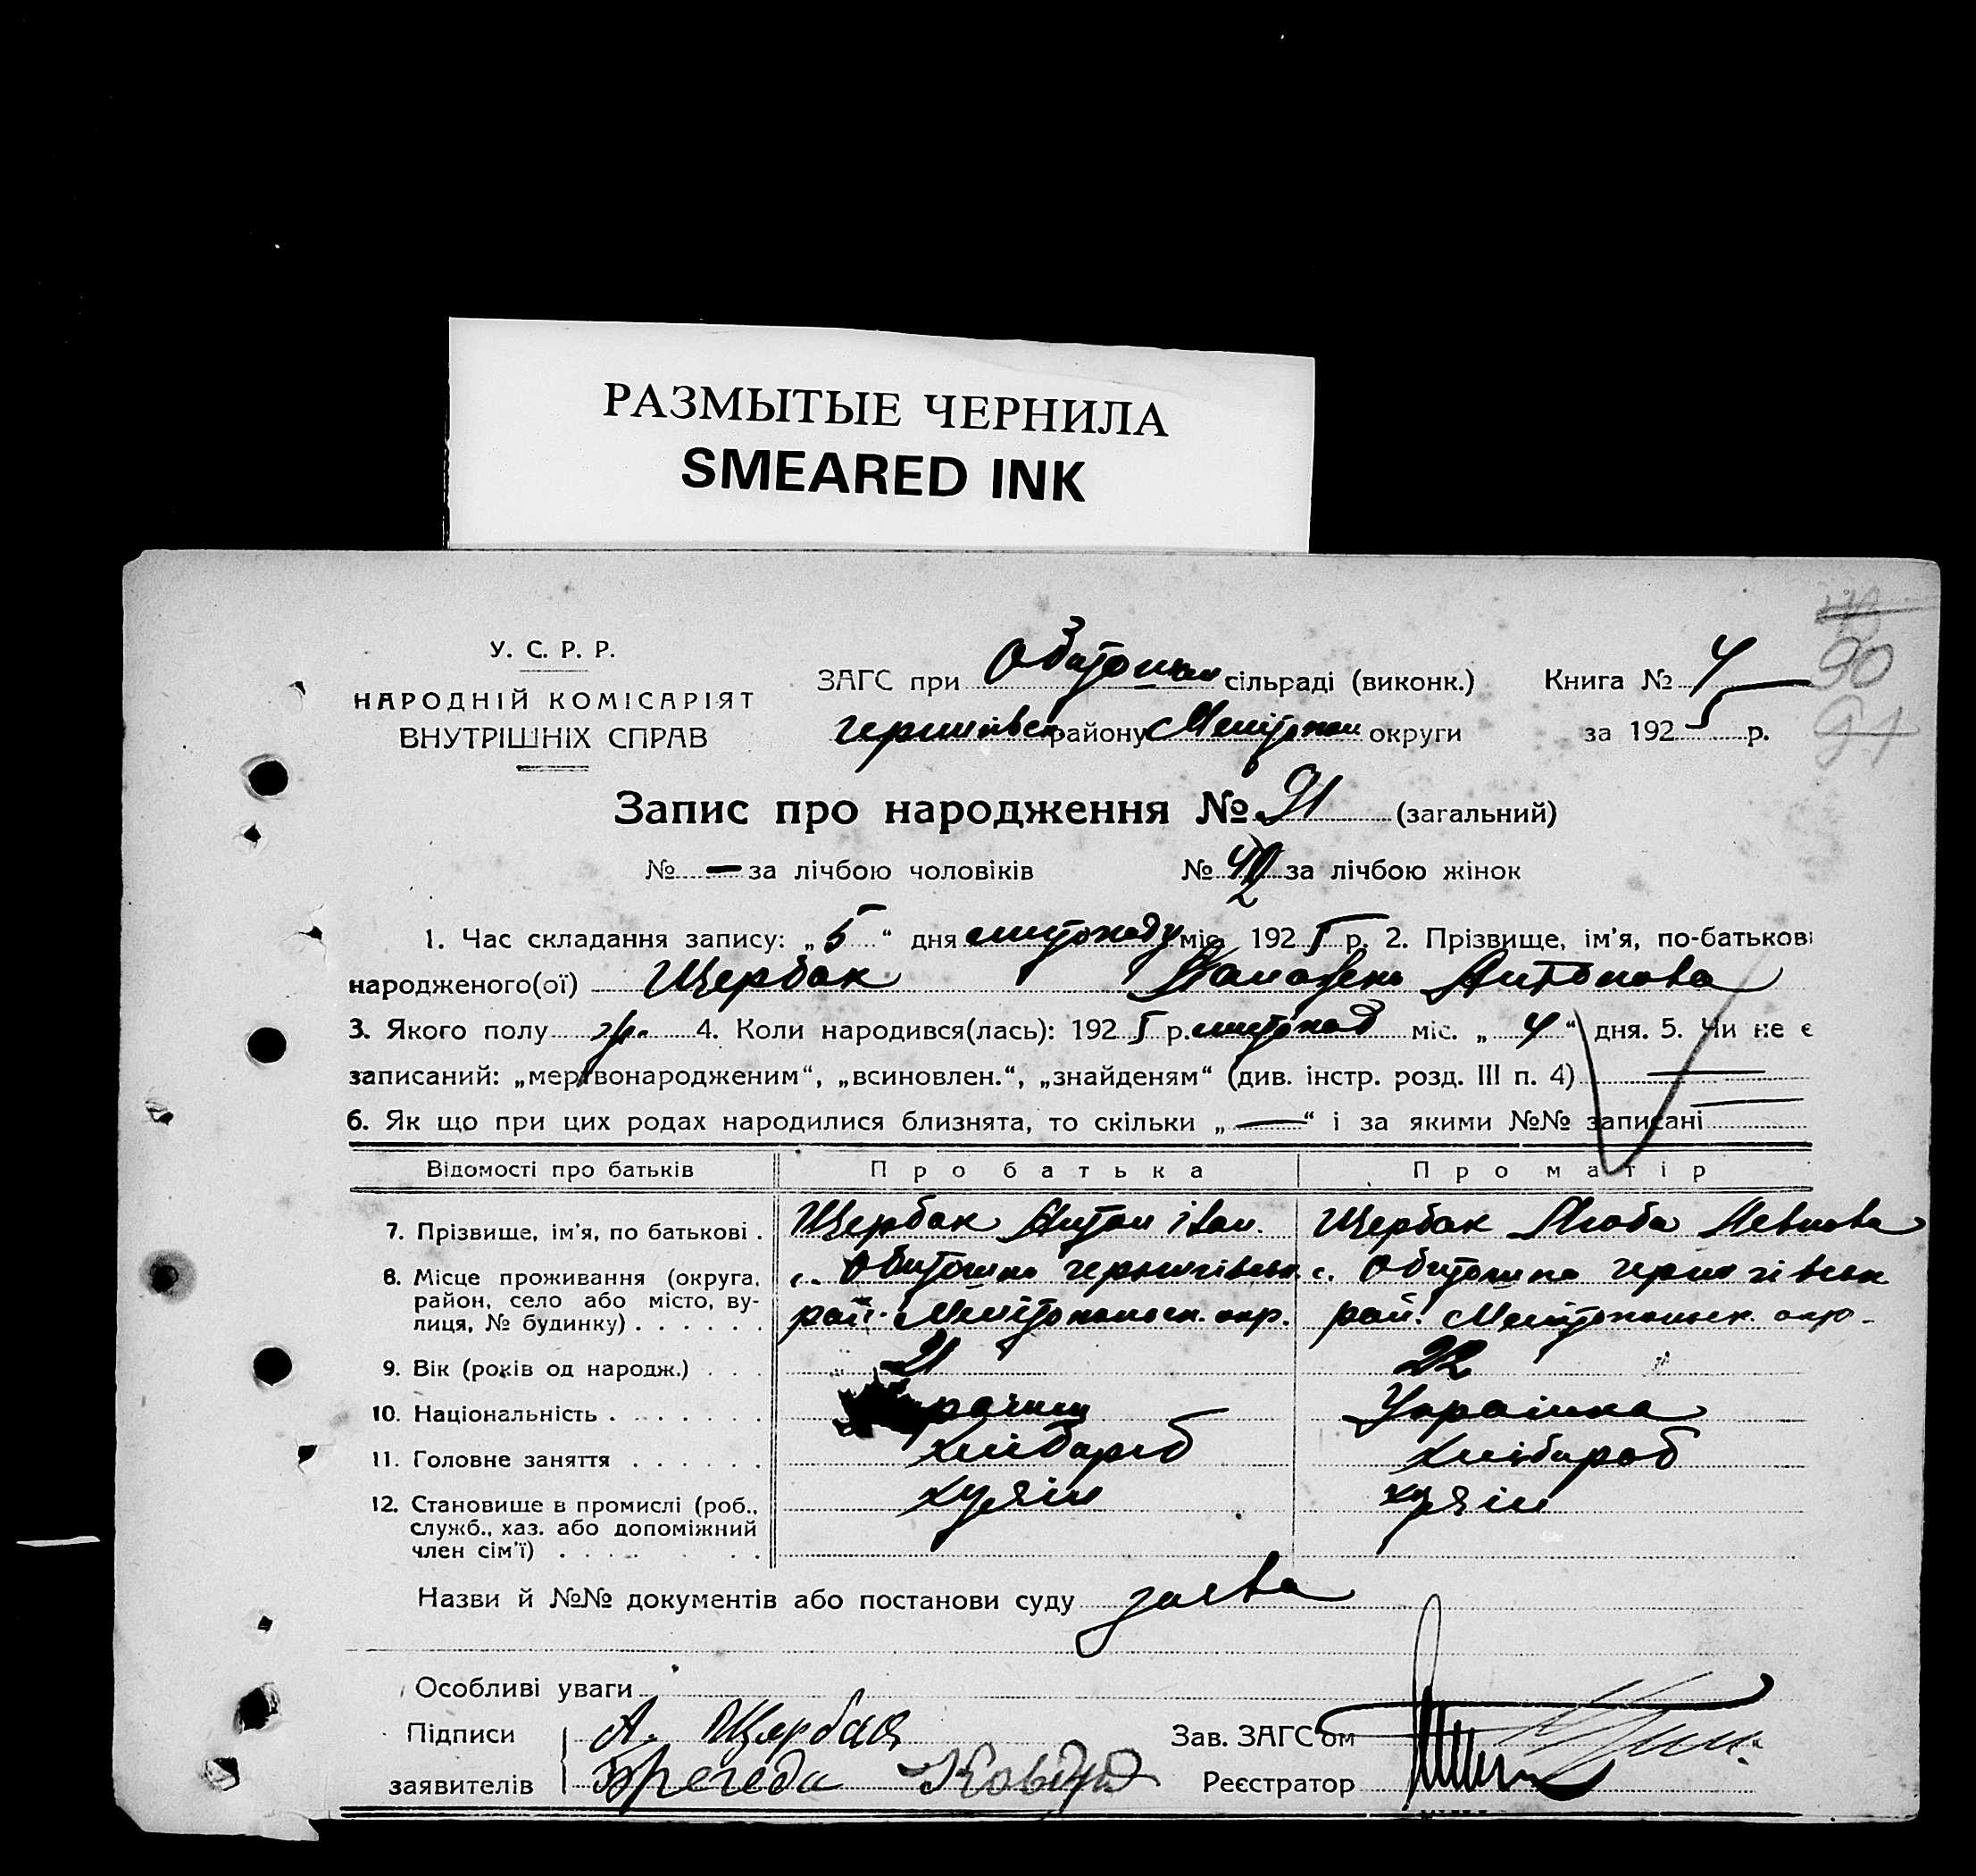 РАЗМЫТЫЕ ЧЕРНИЛА
SMEARED INK
У. С. Р. Р.
НАРОДНІЙ КОМІСАРІЯТ
ВНУТРІШНІХ СПРАВ
90
91
ЗАГС при сільраді (виконк.) Книга № 4
району округи за 1925 р.
Запис про народження № 91 (загальний)
№ — за лічбою чоловіків № 42 за лічбою жінок
1. Час складання запису: „5“ дня листопаду міс. 1925 р. 2. Прізвище, ім'я, по-батькові
народженого(ої) Щербак Антонова
3. Якого полу ж. 4. Коли народився(лась): 1925 р. листопад міс. „4“ дня. 5. Чи не є
записаний: „мертвонародженим“, „всиновлен.“, „знайденям“ (див. інстр. розд. III п. 4) —
6. Як що при цих родах народилися близнята, то скільки „—“ і за якими №№ записані —
Відомості про батьків Про батька Про матір
7. Прізвище, ім'я, по батькові . Щербак Антон Іван. Щербак Люба Левкова
8. Місце проживання (округа, с. Обиточна чернигівськ. с. Обиточна чернигівськ
район, село або місто, ву-
лиця, № будинку) . . . . . . рай. Мелітопольск. окр. рай. Мелітопольск. окр.
9. Вік (років од народж.) . . . 21 22
10. Національність . . . . . . . Українка
11. Головне заняття . . . . . . хлібороб хлібороб
12. Становище в промислі (роб.,
служб., хаз. або допоміжний
член сім'ї) . . . . . . .
Назви й №№ документів або постанови суду заява
Особливі уваги
Підписи А. Щербак Зав. ЗАГС'ом
заявителів Реєстратор